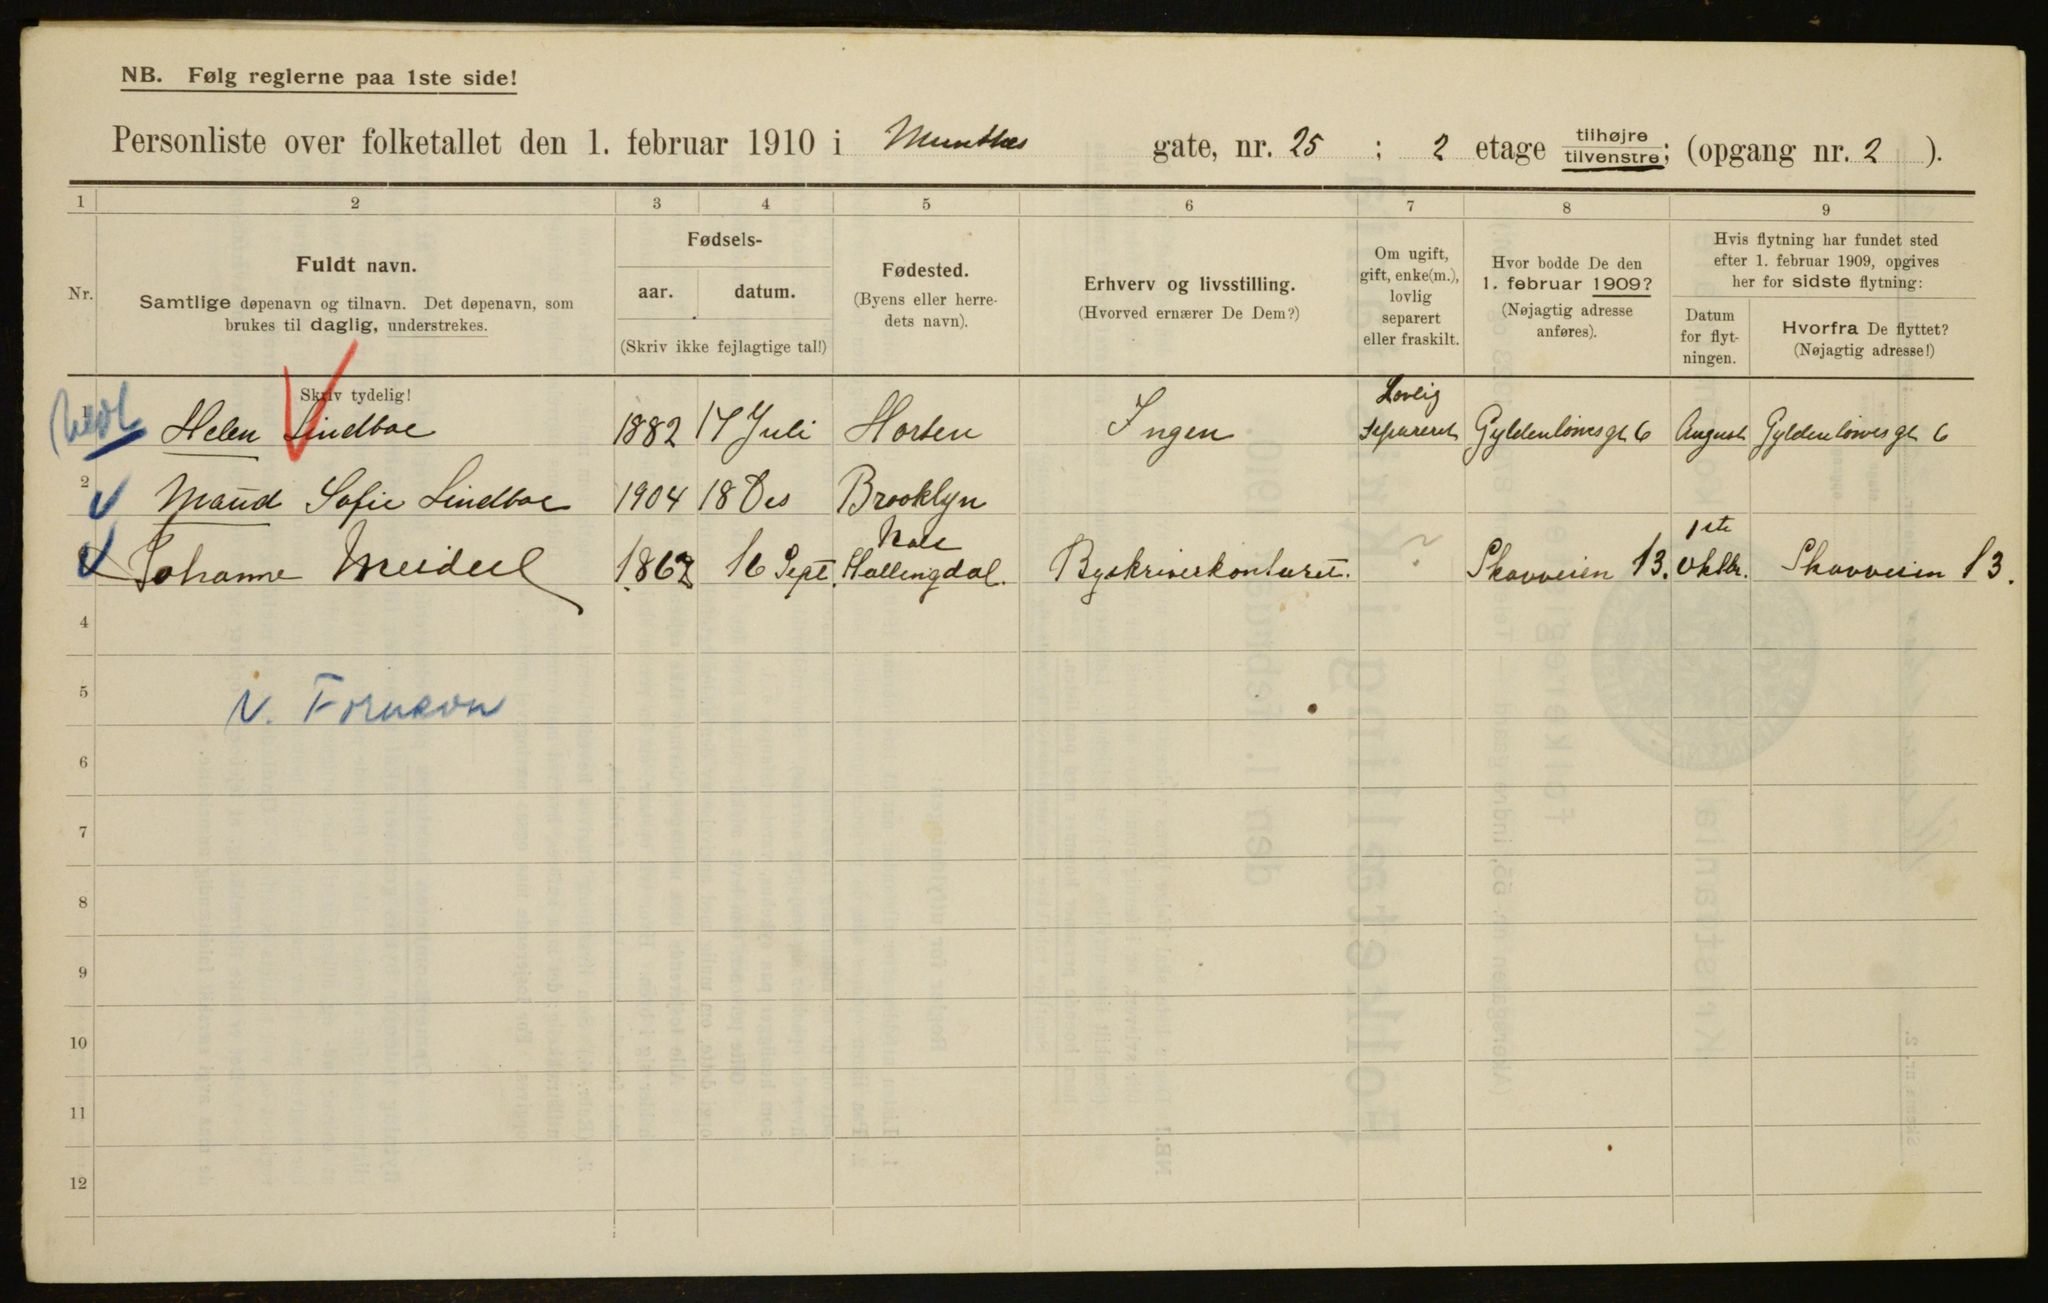 NB. Følg reglerne paa 1ste side!
Personliste over folketallet den 1. februar 1910 i Munthes gate, nr. 25 ; 2 etage tilhøjre tilvenstre; (opgang nr. 2 ).
1 2 3 4 5 6 7 8 9
Nr.
Fuldt navn.
Samtlige døpenavn og tilnavn. Det døpenavn, som
brukes til daglig, understrekes.
Skriv tydelig!
Fødsels-
aar. datum.
(Skriv ikke fejlagtige tal!)
Fødested.
(Byens eller herre-
dets navn).
Erhverv og livsstilling.
(Hvorved ernærer De Dem?)
Om ugift,
gift, enke(m.),
lovlig
separert
eller fraskilt.
Hvor bodde De den
1. februar 1909?
(Nøjagtig adresse
anføres).
Hvis flytning har fundet sted
efter 1. februar 1909, opgives
her for sidste flytning:
Datum
for flyt-
ningen.
Hvorfra De flyttet?
(Nøjagtig adresse!)
1 Helen Lindboe 1882 17 Juli Horten Ingen Lovlig separeret Gyldenløvesgt 6 August Gyldenløvesgt 6
2 Maud Sofie Lindboe 1904 18 Des Brooklyn
Johanne Meidell 1862 16 Sept. Hallingdal. Byskriverkontoret. ? Skovveien 13. 1ste Oktbr. Skovveien 13.
4
5 N. Fornavn
6
7
8
9
10
11
12